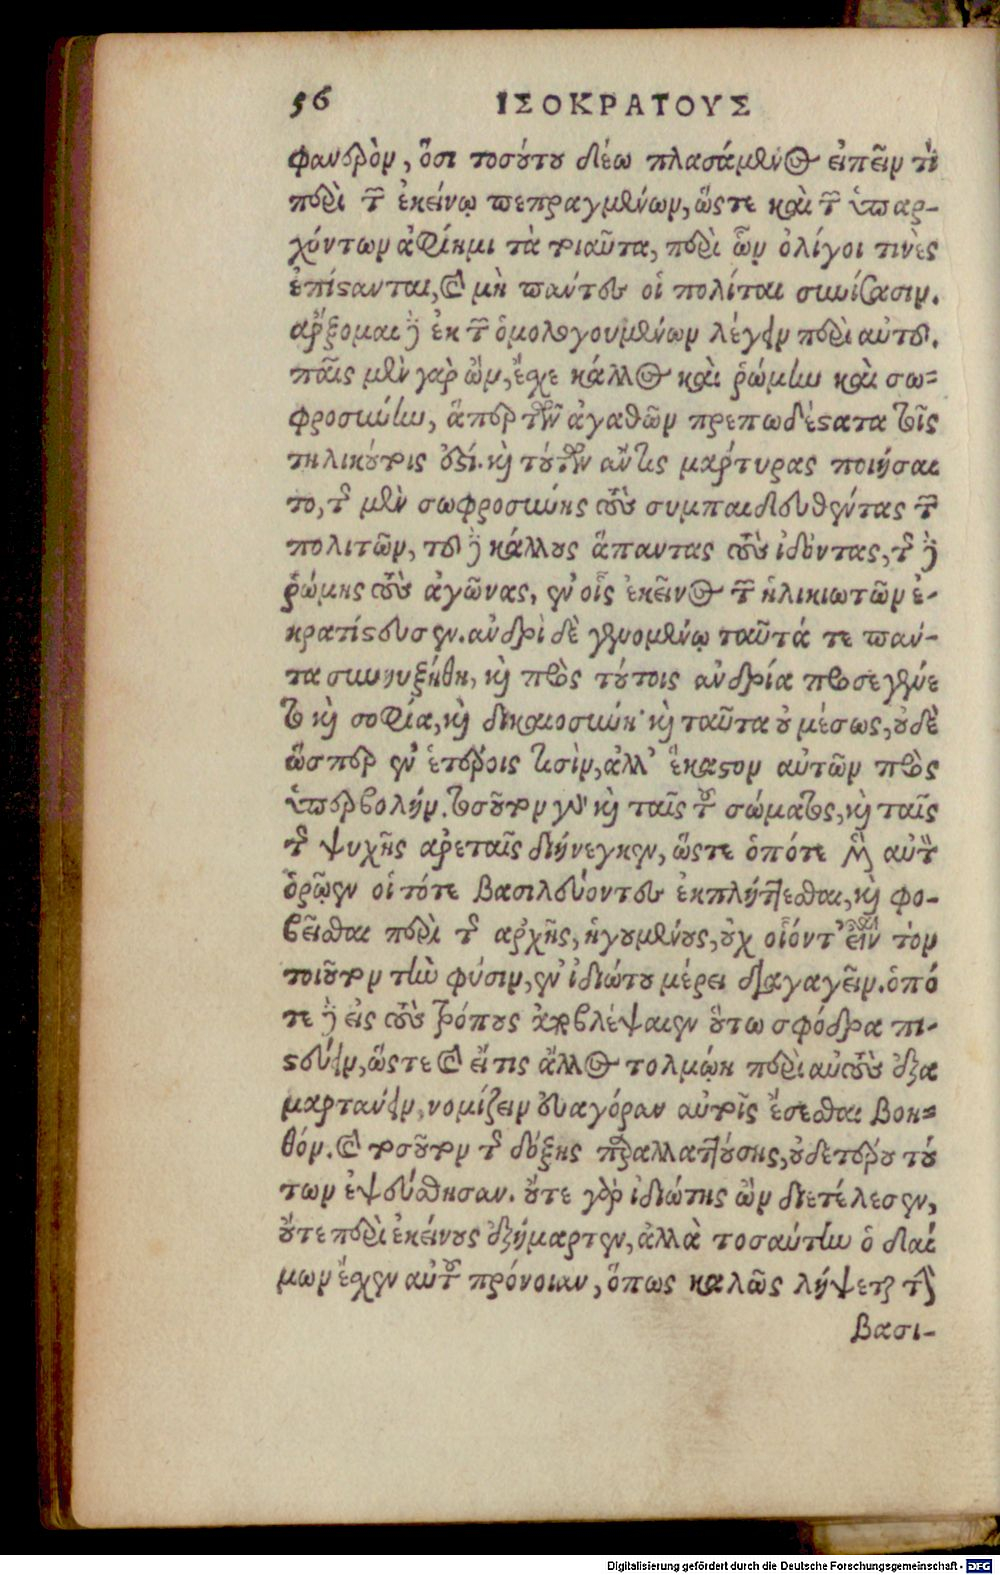 56 ΙΣΟΚΡΑΤΟΥΣ
φανερὸν, ὅτι τοσούτου δέω πλασάμενος εἰπεῖν τὶ
περὶ τῶν ἐκείνῳ πεπραγμένων, ὥςτε καὶ τῶν ὑπαρ-
χόντων ἀφίημι τὰ τοιαῦτα, περὶ ὧν ὀλίγοι τινὲς
ἐπίστανται, καὶ μὴ πάντες οἱ πολῖται συνίσασιν.
ἄρξομαι δὲ ἐκ τῶν ὁμολογουμένων λέγειν περὶ αὐτοῦ.
παῖς μὲν γὰρ ὢν, ἔσχε κάλλος καὶ ῥώμην καὶ σω=
φροσύνην, ἅπερ τῶν ἀγαθῶν πρεπωδέστατα τοῖς
τηλικούτοις ἐστί. καὶ τούτων ἄν τις μάρτυρας ποιήσαι
το, τῆς μὲν σωφροσύνης τοὺς συμπαιδευθέντας τῶν
πολιτῶν, τοῦ δὲ κάλλους ἅπαντας τοὺς ἰδόντας, τῆς δὲ
ῥώμης τοὺς ἀγῶνας, ἐν οἷς ἐκεῖνος τῶν ἡλικιωτῶν ἐ-
κρατίστευσεν. ἀνδρὶ δὲ γενομένῳ ταῦτά τε πάν-
τα συνηυξήθη, καὶ πρὸς τούτοις ἀνδρία προσεγένε
το καὶ σοφία, καὶ δικαιοσύνη· καὶ ταῦτα οὐ μέσως, οὐδὲ
ὥσπερ ἐν ἑτέροις τισὶν, ἀλλ' ἕκαστον αὐτῶν πρὸς
ὑπερβολήν. τοσοῦτον γὰρ καὶ ταῖς τοῦ σώματος, καὶ ταῖς
τῆς ψυχῆς ἀρεταῖς διήνεγκεν, ὥστε ὁπότε μὲν αὐτὸν
ὁρῷεν οἱ τότε βασιλεύοντες ἐκπλήττεσθαι, καὶ φο-
βεῖσθαι περὶ τῆς ἀρχῆς, ἡγουμένους, οὐχ οἷόντ' εἶναι τὸν
τοιοῦτον τὴν φύσιν, ἐν ἰδιώτου μέρει διαγαγεῖν. ὁπό
τε δὲ εἰς τοὺς τρόπους ἀποβλέψαιεν οὕτω σφόδρα πι-
στεύειν, ὥστε καὶ εἴ τις ἄλλος τολμῴη περὶ αὐτοὺς ἐξα
μαρτάνειν, νομίζειν εὐαγόραν αὐτοῖς ἔσεσθαι βοη=
θόν. καὶ τοσοῦτον τῆς δόξης παραλλαττούσης, οὐδετέρου τού
των ἐψεύσθησαν. οὔτε γὰρ ἰδιώτης ὢν διετέλεσεν,
οὔτε περὶ ἐκείνους ἐξήμαρτεν, ἀλλὰ τοσαύτην ὁ δαί
μων ἔσχεν αὐτοῦ πρόνοιαν, ὅπως καλῶς λήψεται τὴν
βασι-
Digitalisierung gefördert durch die Deutsche Forschungsgemeinschaft - DFG